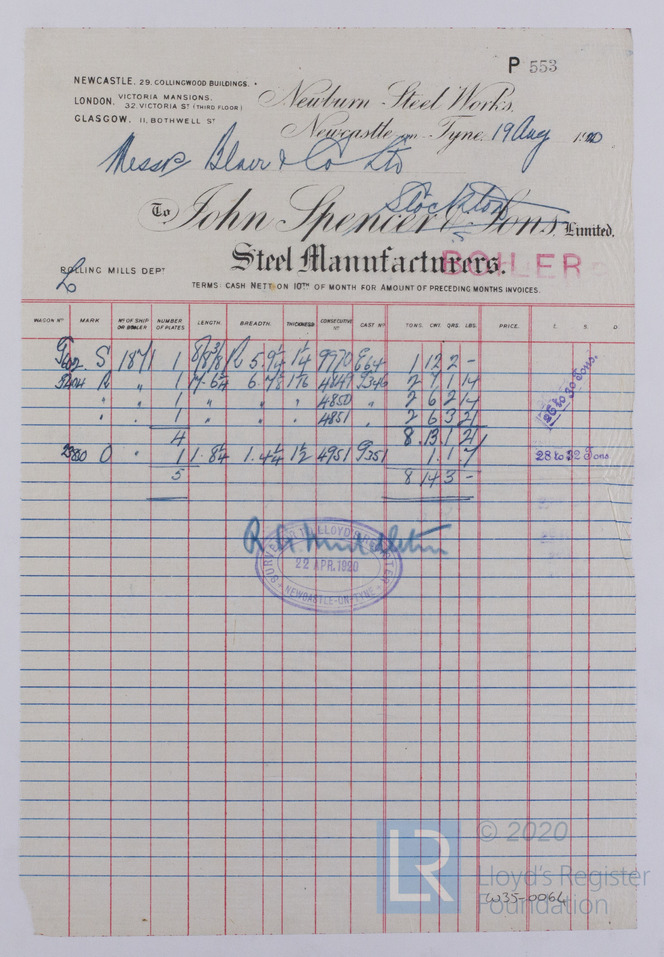 P 553
NEWCASTLE, 29. COLLINGWOOD BUILDINGS.
LONDON, VICTORIA MANSIONS,
32, VICTORIA ST (THIRD FLOOR)
GLASGOW, 11, BOTHWELL ST
Newburn Steel Works,
Newcastle on Tyne, 19 Aug 1920
Messrs Blair & Co Ltd
Stockton
To John Spencer & Sons, Limited.
Steel Manufacturers.
BOILER
ROLLING MILLS DEPT
TERMS: CASH NETT ON 10TH OF MONTH FOR AMOUNT OF PRECEDING MONTHS INVOICES.
WAGON No MARK No OF SHIP OR BOILER NUMBER OF PLATES LENGTH. BREADTH. THICKNESS CONSECUTIVE No CAST No TONS. CWT. QRS. LBS. PRICE. £ S D
S 1871 1 9970 E64 1 12 2 -
R " 1 4849 2 7 1 14
" " 1 " " " 4850 " 2 6 2 14
" " 1 " " " 4851 " 2 6 3 21
4 8 13 1 21
O " 1 4951 1 1 7
5 8 14 3 -
26 to 30 Tons.
28 to 32 Tons
R. G. Middleton
SURVEYOR TO LLOYD'S REGISTER
22 APR. 1920
NEWCASTLE-ON-TYNE
LR
© 2020
Lloyd's Register
Foundation
W35-0064